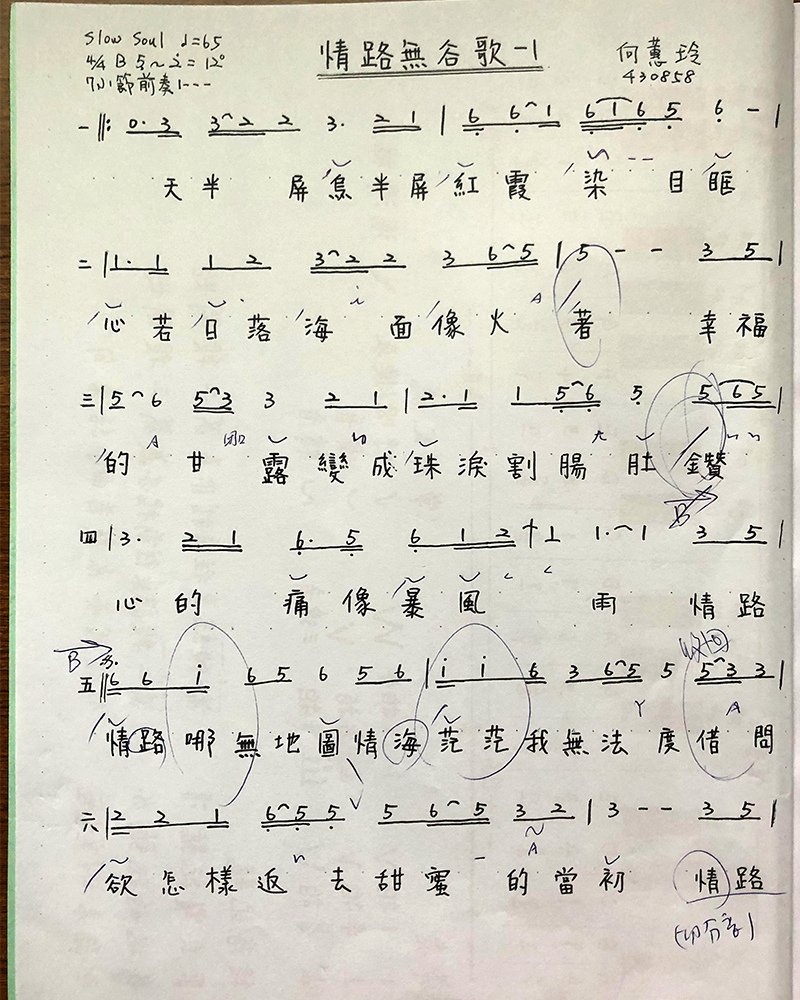 Slow Soul ♩=65
情路無谷歌-1
何蕙玲
4/4 B 5~2=12°
430858
7小節前奏1---
一 ‖: 0. 3 3 2 2 3. 2 1 | 6 6 1 6 1 6 5 6 - |
天半 屏(焉)半屏紅霞 染 目眶
二 | 1. 1 1 2 3 2 2 3 6 5 | 5 - - 3 5 |
心若日落海 面像火 著 幸福
三 | 5 6 5 3 3 2 1 | 2. 1 1 5 6 5 5 6 5 |
的 甘 露變成珠淚割腸肚 鑽
B
四 | 3. 2 1 6. 5 6 1 2 1 1. 1 3 5 |
心的 痛像暴風 雨 情路
B
收回
五 ‖ 6 6 i 6 5 6 5 6 | i i 6 3 6 5 5 5 3 3 |
情路哪無地圖情海茫茫我無法度借問
六 | 2 2 1 6 5 5 5 6 5 3 2 | 3 - - 3 5 |
欲怎樣返 去甜蜜 的當初 情路
(切分音)